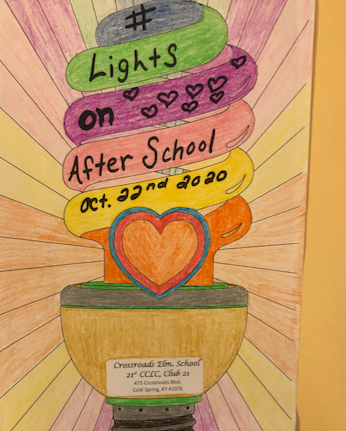 #
Lights
on
After School
Oct. 22nd 2020
Crossroads Elm. School
21st CCLC, Club 21
475 Crossroads Blvd.
Cold Spring, KY 41076